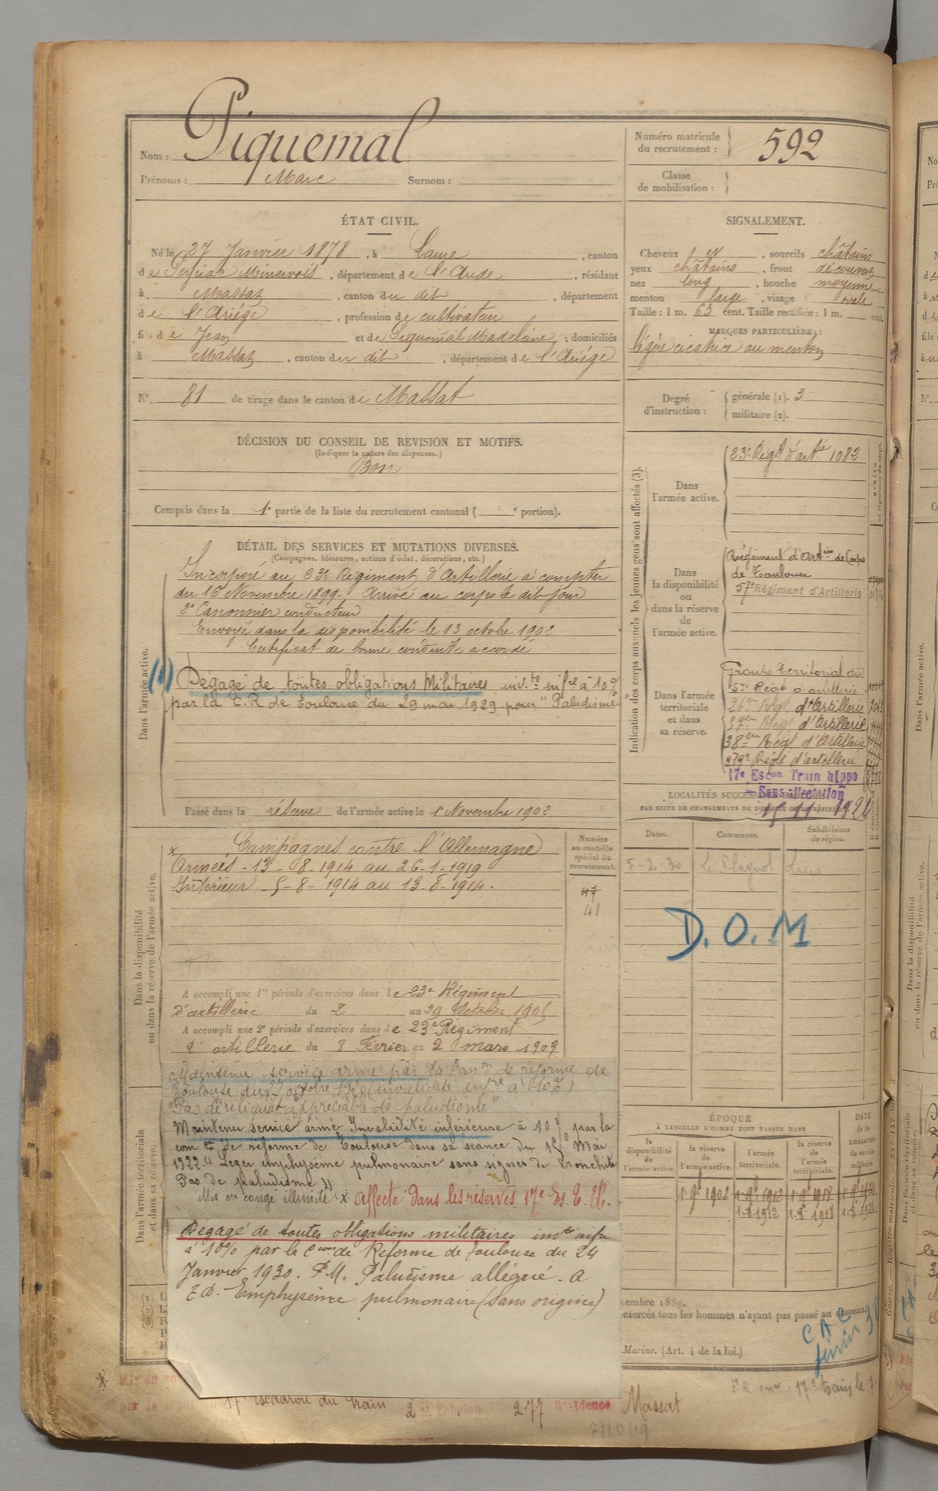 Nom : Piquemal
Prénoms : Marc Surnom :
Numéro matricule du recrutement : 592
Classe de mobilisation :
ÉTAT CIVIL.
Né le 27 Janvier 1878, à Laure, canton
de Peyriac Minervois, département de l'Aude, résidant
à Massat, canton du dit, département
de l'Ariège, profession de cultivateur
fils de Jean et de Piquemal Madeleine, domiciliés
à Massat, canton du dit, département de l'Ariège
N° 81 de tirage dans le canton de Massat
SIGNALEMENT.
Cheveux et, sourcils châtains
yeux châtains, front découvert
nez long, bouche moyenne
menton large, visage ovale
Taille : 1 m. 63 cent. Taille rectifiée : 1 m. cent.
MARQUES PARTICULIÈRES :
légère cicatrice au menton
Degré d'instruction : générale (1). 3
militaire (2).
DÉCISION DU CONSEIL DE REVISION ET MOTIFS.
(Indiquer la nature des dispenses.)
Bon
Compris dans la 1e partie de la liste du recrutement cantonal ( e portion).
DÉTAIL DES SERVICES ET MUTATIONS DIVERSES.
(Campagnes, blessures, actions d'éclat, décorations, etc.)
Dans l'armée active.
Incorporé au 23e Régiment d'Artillerie à compter
du 16 Novembre 1899. Arrivé au corps le dit jour
2e Canonnier conducteur
Envoyé dans la disponibilité le 13 octobre 1902
Certificat de bonne conduite accordé
(1) Dégagé de toutes obligations Militaires inv.té infre à 10%
par la C.R de Toulouse du 29 mai 1929 pour "Paludisme
Passé dans la réserve de l'armée active le 1 Novembre 1902
Indication des corps auxquels les jeunes gens sont affectés (3).
Dans l'armée active.
23e Régt d'arté 1083
Dans la disponibilité ou dans la réserve de l'armée active.
Régiment d'Artrie de Corps
de Toulouse
57e Régiment d'Artillerie
Dans l'armée territoriale et dans sa réserve.
Groupe territorial du
57e Régt d'artillerie
26e Régt d'Artillerie
37eme Régt d'Artillerie
38eme Régt d'Artillerie
279e Régt d'artillerie
17e Escon Train hippo
Sans affectation
15 11 1921
LOCALITÉS SUCCES
PAR SUITE DE CHANGEMENTS DE
Dates. Communes. Subdivisions de région.
5-2-30
D.O.M
Dans la disponibilité ou dans la réserve de l'armée active.
x Campagnes contre l'Allemagne
Armées - 13-08-1914 au 26-1-1919
Intérieur 5-8-1914 au 13-8-1914.
Numéro au contrôle spécial du recrutement.
47
41
A accompli une 1re période d'exercices dans le 23e Régiment
d'artillerie du 2 au 29 Octobre 1905
A accompli une 2e période d'exercices dans le 23e Régiment
d'artillerie du 8 Février au 2 mars 1909
Dans l'armée territoriale et dans sa réserve.
Maintenu service armé par la Con de réforme de
Toulouse du
Pas de reliquat appréciable de paludisme"
Maintenu service armé Invalidité inférieure à 10% par la
com de réforme de Toulouse dans sa séance du 15 Mai
1922 "Léger emphysème pulmonaire sans signes de bronchite
Pas de paludisme"
Mis en congé illimité x affecté dans les réserves 17e Es. T. H.
Dégagé de toutes obligations militaires inté infre
à 10% par la Con de Réforme de Toulouse du 24
Janvier 1930. P.M. Paludisme allégué. A
E.D. Emphysème pulmonaire (sans origine)
ÉPOQUE
À LAQUELLE L'HOMME DOIT PASSER DANS
la disponibilité de l'armée active.
la réserve de l'armée active.
l'armée territoriale.
la réserve de l'armée territoriale.
DATE de la LIBÉRATION du service militaire.
cembre 1889.
exercés tous les hommes n'ayant pas passé au drapeau.
Marine. (Art. 4 de la loi.)
CAC
février 30
17e Escadron du Train
277 Résidence Massat